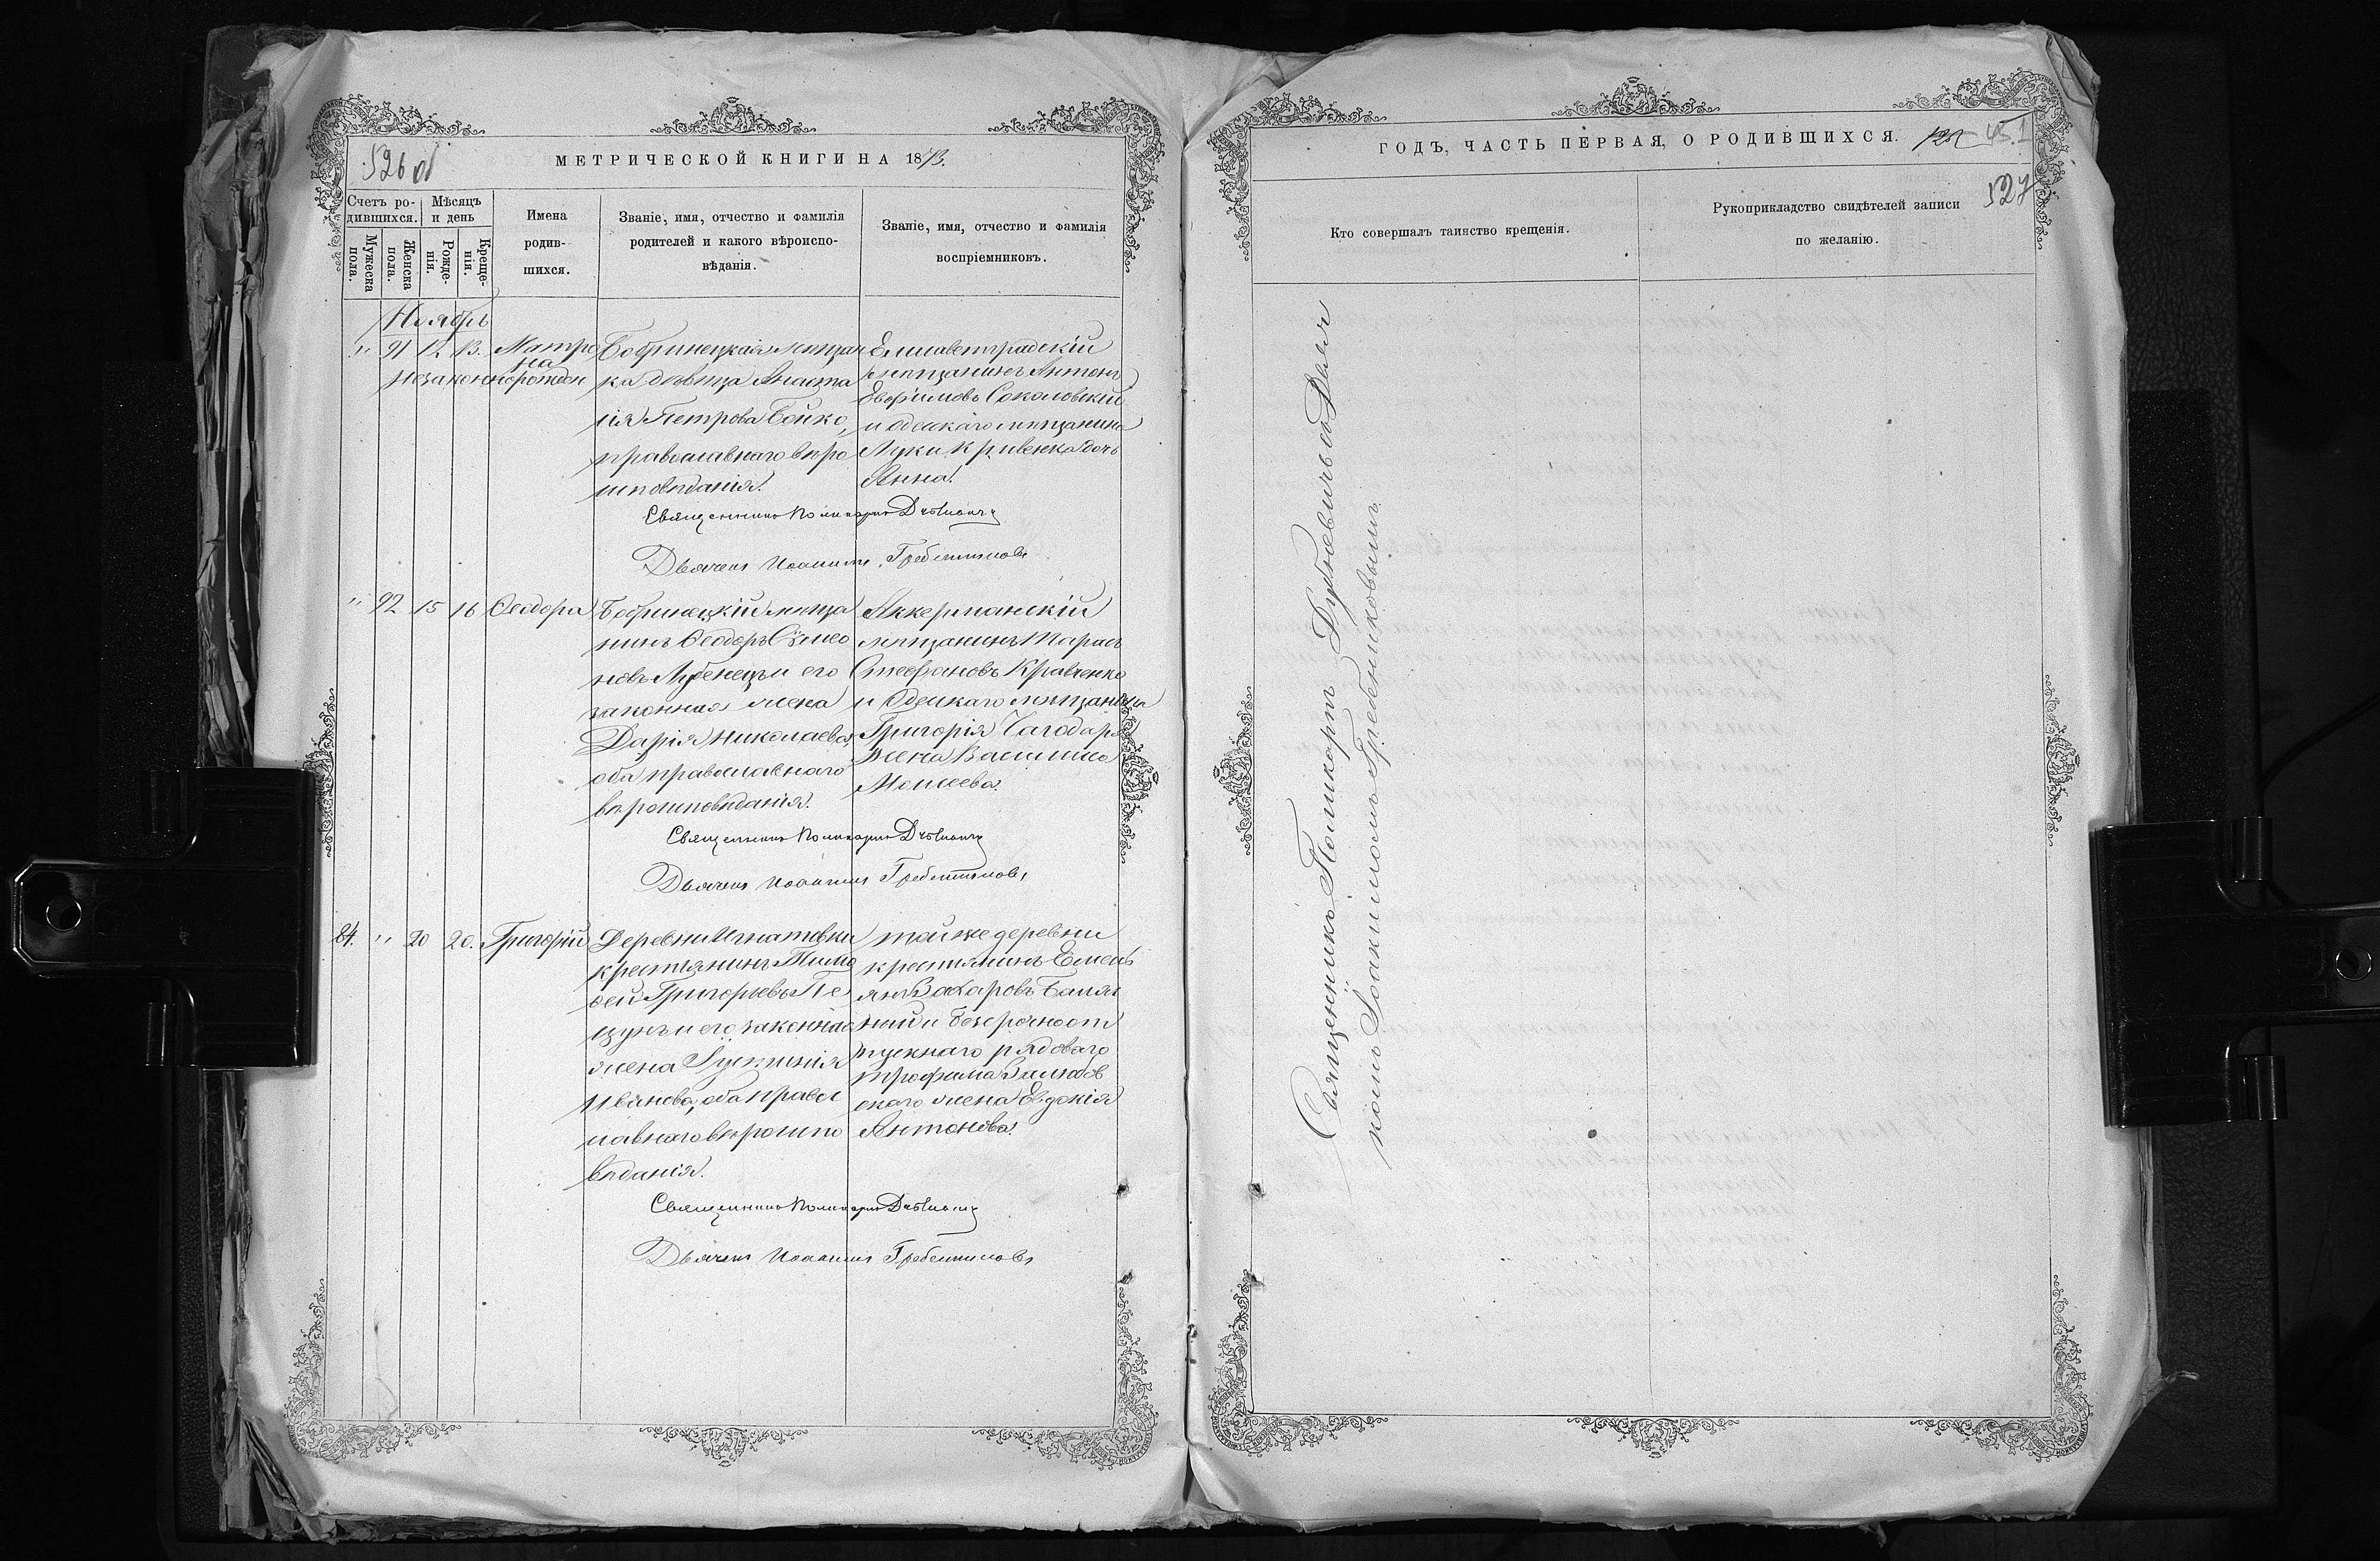 526 об
МЕТРИЧЕСКОЙ КНИГИ НА 1873.
Счетъ ро-
дившихся.
Мѣсяцъ
и день
Мужеска
пола.
Женска
пола.
Рожде-
нія.
Креще-
нія.
Имена
родив-
шихся.
Званіе, имя, отчество и фамилія
родителей и какого вѣроиспо-
вѣданія.
Званіе, имя, отчество и фамилія
воспріемниковъ.
Ноябрь
" 91 12 13. Матро
на
незаконнорожден
Бобринецкая мѣщан
ка дѣвица Анаста
сія Петрова Бойко,
православнаго вѣро
исповѣданія.
Елисаветградскій
мѣщанинъ Антонъ
Евфимовъ Соколовскій
и одесскаго мѣщанина
Луки Кривенка дочь
Анна.
Священникъ Поликарпъ
Дьячекъ Иоакимъ Гребенниковъ
" 92 15 16 Ѳеодора
Бобринецкій мѣща
нинъ Ѳеодоръ Сѵмео
новъ Лубенецъ и его
законная жена
Дарія Николаева,
оба православнаго
вѣроисповѣданія.
Аккерманскій
мѣщанинъ Тарасъ
Стефановъ Кравченко
и Одесскаго мѣщанина
Григорія
жена Василиса
Моисеева.
Священникъ Поликарпъ
Дьячекъ Иоакимъ Гребенниковъ
84. " 20 20. Григорій
Деревни Игнатовки
крестьянинъ Тимо
ѳей Григорьевъ Пе
цунъ и его законная
жена Іустинія
Иванова, оба правос
лавнаго вѣроиспо
вѣданія.
той же деревни
крестьянинъ Емель
янъ Захаровъ
и безсрочноот
пускнаго рядоваго
Трофима
скаго жена Евдокія
Антонова.
Священникъ Поликарпъ
Дьячекъ Иоакимъ Гребенниковъ
ГОДЪ, ЧАСТЬ ПЕРВАЯ, О РОДИВШИХСЯ.
451
527
Кто совершалъ таинство крещенія.
Рукоприкладство свидѣтелей записи
по желанію.
Священникъ Поликарпъ Дубневичъ съ Дьяч
комъ Іоакимомъ Гребенниковымъ